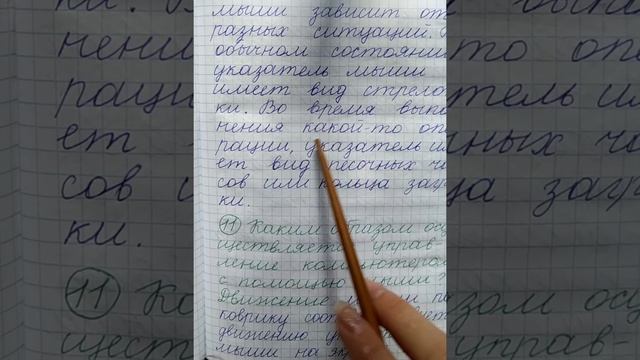 мыши зависит от
разных ситуаций.
обычном состоянии
указатель мыши
имеет вид стрело
ки. Во время выпо
нения какой-то оп
рации, указатель им
ет вид песочных ча
сов или кольца загру
ки.
11 Каким образом осу
ществляется управ-
ление компьютером
с помощью мыши?
Движение
коврику
движению
мыши на